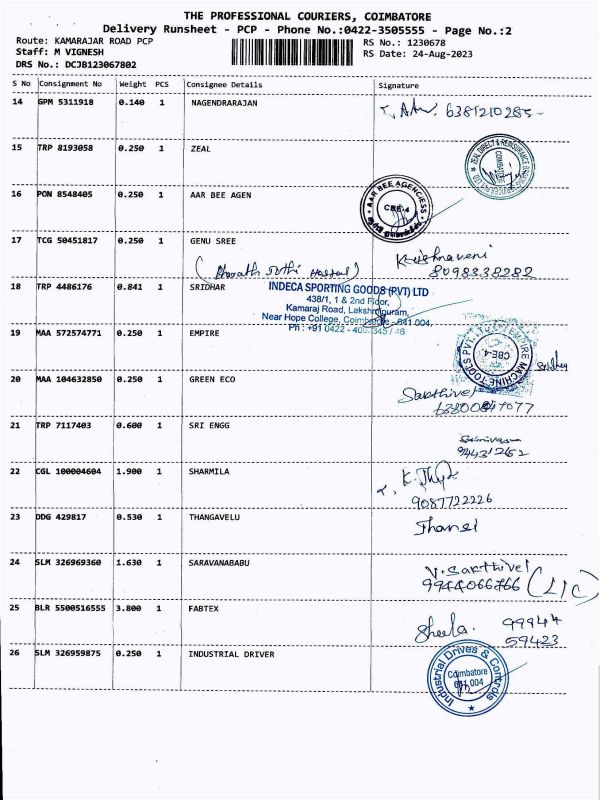 THE PROFESSIONAL COURIERS, COIMBATORE
Delivery Runsheet - PCP - Phone No.:0422-3505555 - Page No.:2
Route: KAMARAJAR ROAD PCP
RS No.: 1230678
Staff: M VIGNESH
RS Date: 24-Aug-2023
DRS No.: DCJB123067802
S No Consignment No Weight PCS Consignee Details Signature
14 GPM 5311918 0.140 1 NAGENDRARAJAN
6381210285
15 TRP 8193058 0.250 1 ZEAL
16 PON 8548405 0.250 1 AAR BEE AGEN
AAR BEE AGENCIESS
CBE-4
17 TCG 50451817 0.250 1 GENU SREE
Krishnaveni
8098338282
18 TRP 4486176 0.841 1 SRIDHAR
INDECA SPORTING GOODS (PVT) LTD
438/1, 1 & 2nd Floor,
Kamaraj Road, Lakshmipuram,
Near Hope College, Coimbatore - 641 004.
Ph : +91 0422 -
19 MAA 572574771 0.250 1 EMPIRE
EMPIRE MACHINE TOOLS PVT. LTD
CBE-4
20 MAA 104632850 0.250 1 GREEN ECO
Sakthivel
21 TRP 7117403 0.600 1 SRI ENGG
22 CGL 100004604 1.900 1 SHARMILA
9087722226
23 DDG 429817 0.530 1 THANGAVELU
24 SLM 326969360 1.630 1 SARAVANABABU
V. Sakthivel
(LIC)
25 BLR 5500516555 3.800 1 FABTEX
Sheela. 99944
59423
26 SLM 326959875 0.250 1 INDUSTRIAL DRIVER
Industrial Drives & Controls
Coimbatore
641 004